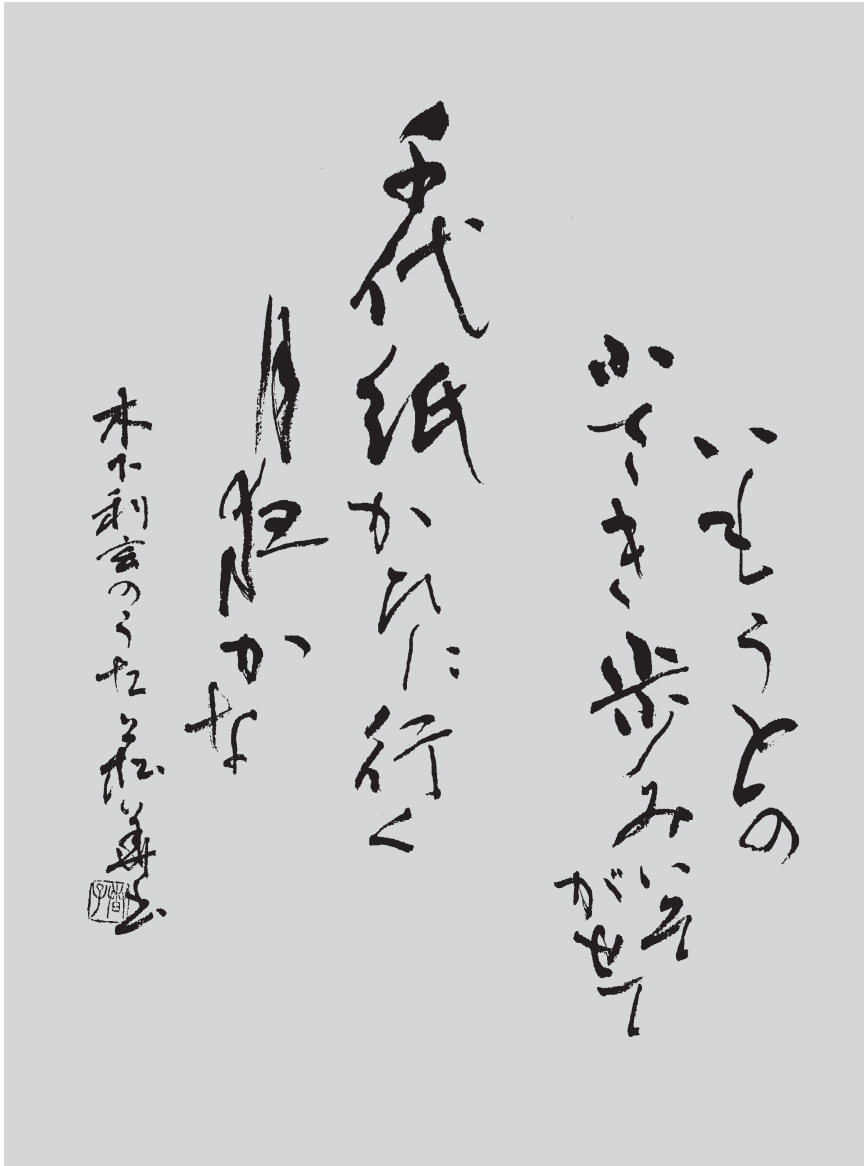 いもうとの
小さき歩みいそ
がせて
千代紙かひに行く
月夜かな
木下利玄のうた